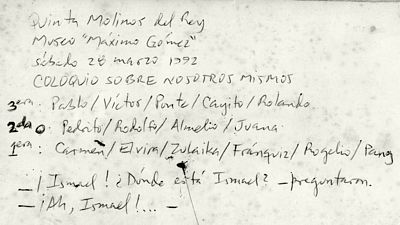 Quinta Molinos del Rey
Museo "Máximo Gómez"
sábado 28 marzo 1992
COLOQUIO SOBRE NOSOTROS MISMOS
3era: Pablo/Víctor/Ponte/Cayito/Rolando
2da: Pedrito/Rodolfo/Almelio/Juana
1era: Carmen/Elvira/Zulaika/Fránquiz/Rogelio/Pany
—¡Ismael! ¿Dónde está Ismael? —preguntaron.
—¡Ah, Ismael!... —